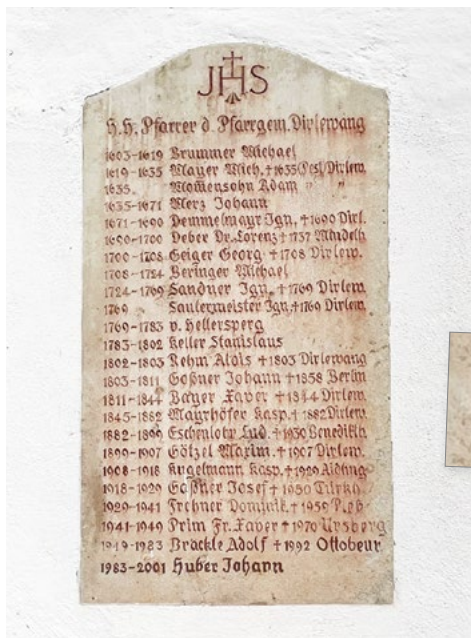 JHS
H.H. Pfarrer d. Pfarrgem. Dirlewang
1603-1619 Brummer Michael
1619-1635 Mayer Mich. +1635 (Pest) Dirlew.
1635. Momensohn Adam " "
1635-1671 Merz Johann
1671-1690 Demmelmayr Ign. +1690 Dirl.
1690-1700 Deber Dr. Lorenz +1737 Mindelh
1700-1708 Geiger Georg +1708 Dirlew.
1708-1724 Beringer Michael
1724-1769 Sandner Ign. +1769 Dirlew.
1769 Saulermeister Ign. +1769 Dirlew
1769-1783 v. Hellersperg
1783-1802 Keller Stanislaus
1802-1803 Rehm Alois +1803 Dirlewang
1803-1811 Goßner Johann +1858 Berlin
1811-1844 Bayer Xaver +1844 Dirlew.
1845-1882 Mayrhöfer Kasp. +1882 Dirlew.
1882-1899 Eschenlohr Lud. +1930 Benediktb.
1899-1907 Götzel Maxim. +1907 Dirlew.
1908-1918 Kugelmann Kasp. +1929 Aidling
1918-1929 Gaßner Josef +1950 Türkh.
1929-1941 Frehner Dominik. +1959
1941-1949 Prim Fr. Xaver +1970 Ursberg
1949-1983 Bräckle Adolf +1992 Ottobeur
1983-2001 Huber Johann